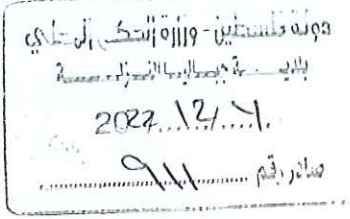 دولة فلسطين - وزارة الحكم المحلي
بلدية جباليا النزلة
2022/12/7
صادر رقم 911